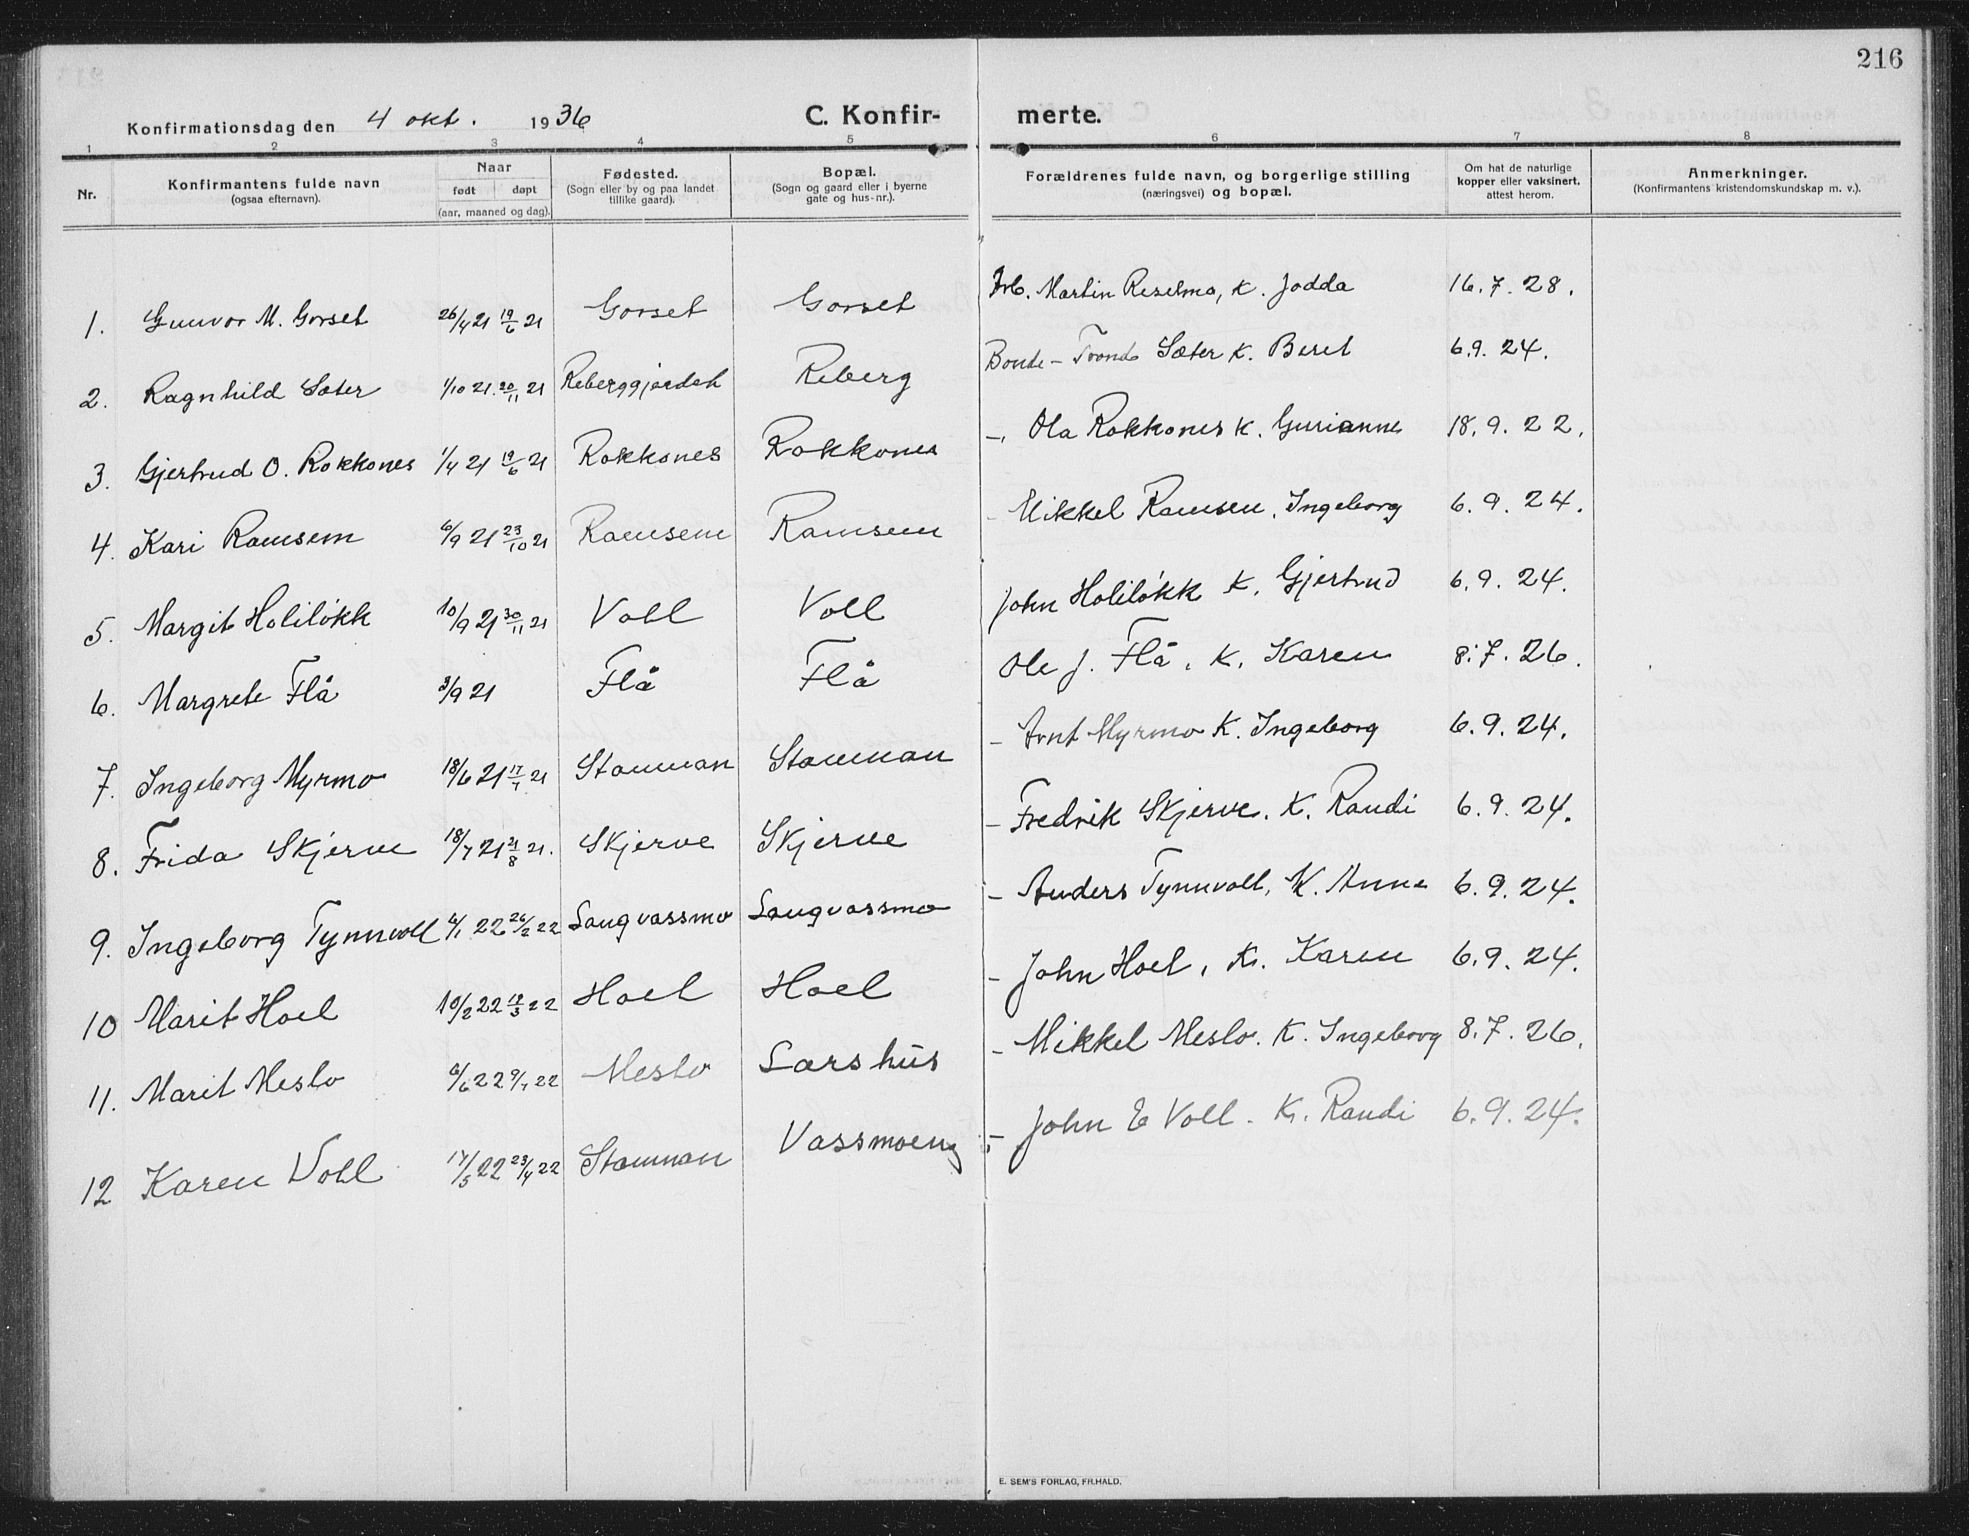 216
Konfirmationsdag den 4 okt. 1936 C. Konfir- merte.
1 2 3 4 5 6 7 8
Nr. Konfirmantens fulde navn (ogsaa efternavn). Naar født døpt (aar, maaned og dag). Fødested. (Sogn eller by og paa landet tillike gaard). Bopæl. (Sogn og gaard eller i byerne gate og hus-nr.). Forældrenes fulde navn, og borgerlige stilling (næringsvei) og bopæl. Om hat de naturlige kopper eller vaksinert, attest herom. Anmerkninger. (Konfirmantens kristendomskundskap m. v.).
1. Gunvor M. Gorset 26/4 21 19/6 21 Gorset Gorset Arb. Martin Reselmo, K. Jodda 16.7.28.
2. Ragnhild Sæter 1/10 21. 20/11 21 Reberggjærdet Reberg Bonde - Trond Sæter K. Beret 6.9.24.
3. Gjertrud O. Rokkones 1/4 21 19/6 21 Rokkones Rokkones -, Ola Rokkones K. Gurianne 18.9.22.
4. Kari Ramsem 6/9 21 23/10 21 Ramsem Ramsem - Mikkel Ramsem, Ingeborg 6.9.24.
5. Margit Holiløkk 10/9 21 30/11 21 Voll Voll John Holiløkk K. Gjertrud 6.9.24.
6. Margrete Flå 3/9 21 Flå Flå Ole J. Flå, K. Karen 8.7.26.
7. Ingeborg Myrmo 18/6 21 17/7 21 Stamnan Stamnan - Arnt Myrmo K. Ingeborg 6.9.24.
8. Frida Skjerve 18/7 21 21/8 21. Skjerve Skjerve - Fredrik Skjerve. K. Randi 6.9.24.
9. Ingeborg Tynnvoll 6/1 22 26/2 22 Langvassmo Langvassmo - Anders Tynnvoll, K. Anne 6.9.24.
10 Marit Hoel 10/2 22 19/3 22 Hoel Hoel - John Hoel, K. Karen 6.9.24.
11. Marit Meslo 6/6 22 9/7 22 Meslo Larshus - Mikkel Meslo. K. Ingeborg 8.7.26.
12 Karen Voll 17/5 22 23/4 22 Stamnan Vassmoeng - John E Voll. K. Randi 6.9.24.
E. SEM'S FORLAG, FR.HALD.